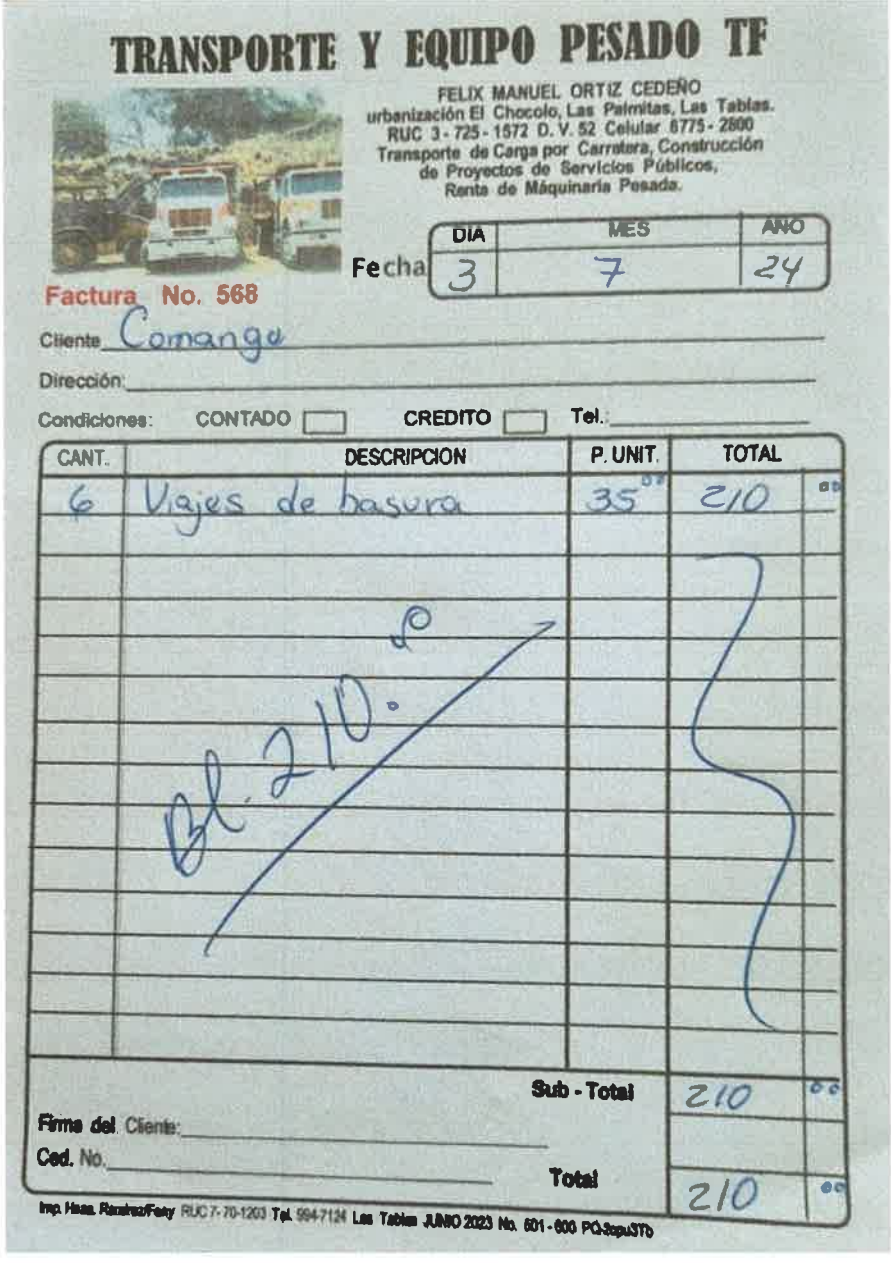 TRANSPORTE Y EQUIPO PESADO TF
FELIX MANUEL ORTIZ CEDEÑO
urbanización El Chocolo, Las Palmitas, Las Tablas.
RUC 3-725-1572 D. V. 52 Celular 6775-2800
Transporte de Carga por Carretera, Construcción
de Proyectos de Servicios Públicos,
Renta de Máquinaria Pesada.
DIA MES AÑO
Fecha 3 7 24
Factura No. 568
Cliente Comango
Dirección:
Condiciones: CONTADO CREDITO Tel.:
CANT. DESCRIPCION P. UNIT. TOTAL
6 Viajes de basura 35 00 210 00
Bl. 210. 00
Sub - Total 210 00
Firma del Cliente:
Ced. No.
Total 210 00
Imp. Hnos. Ramírez/Feny RUC 7-70-1203 Tel. 994-7124 Las Tablas JUNIO 2023 No. 501 - 600